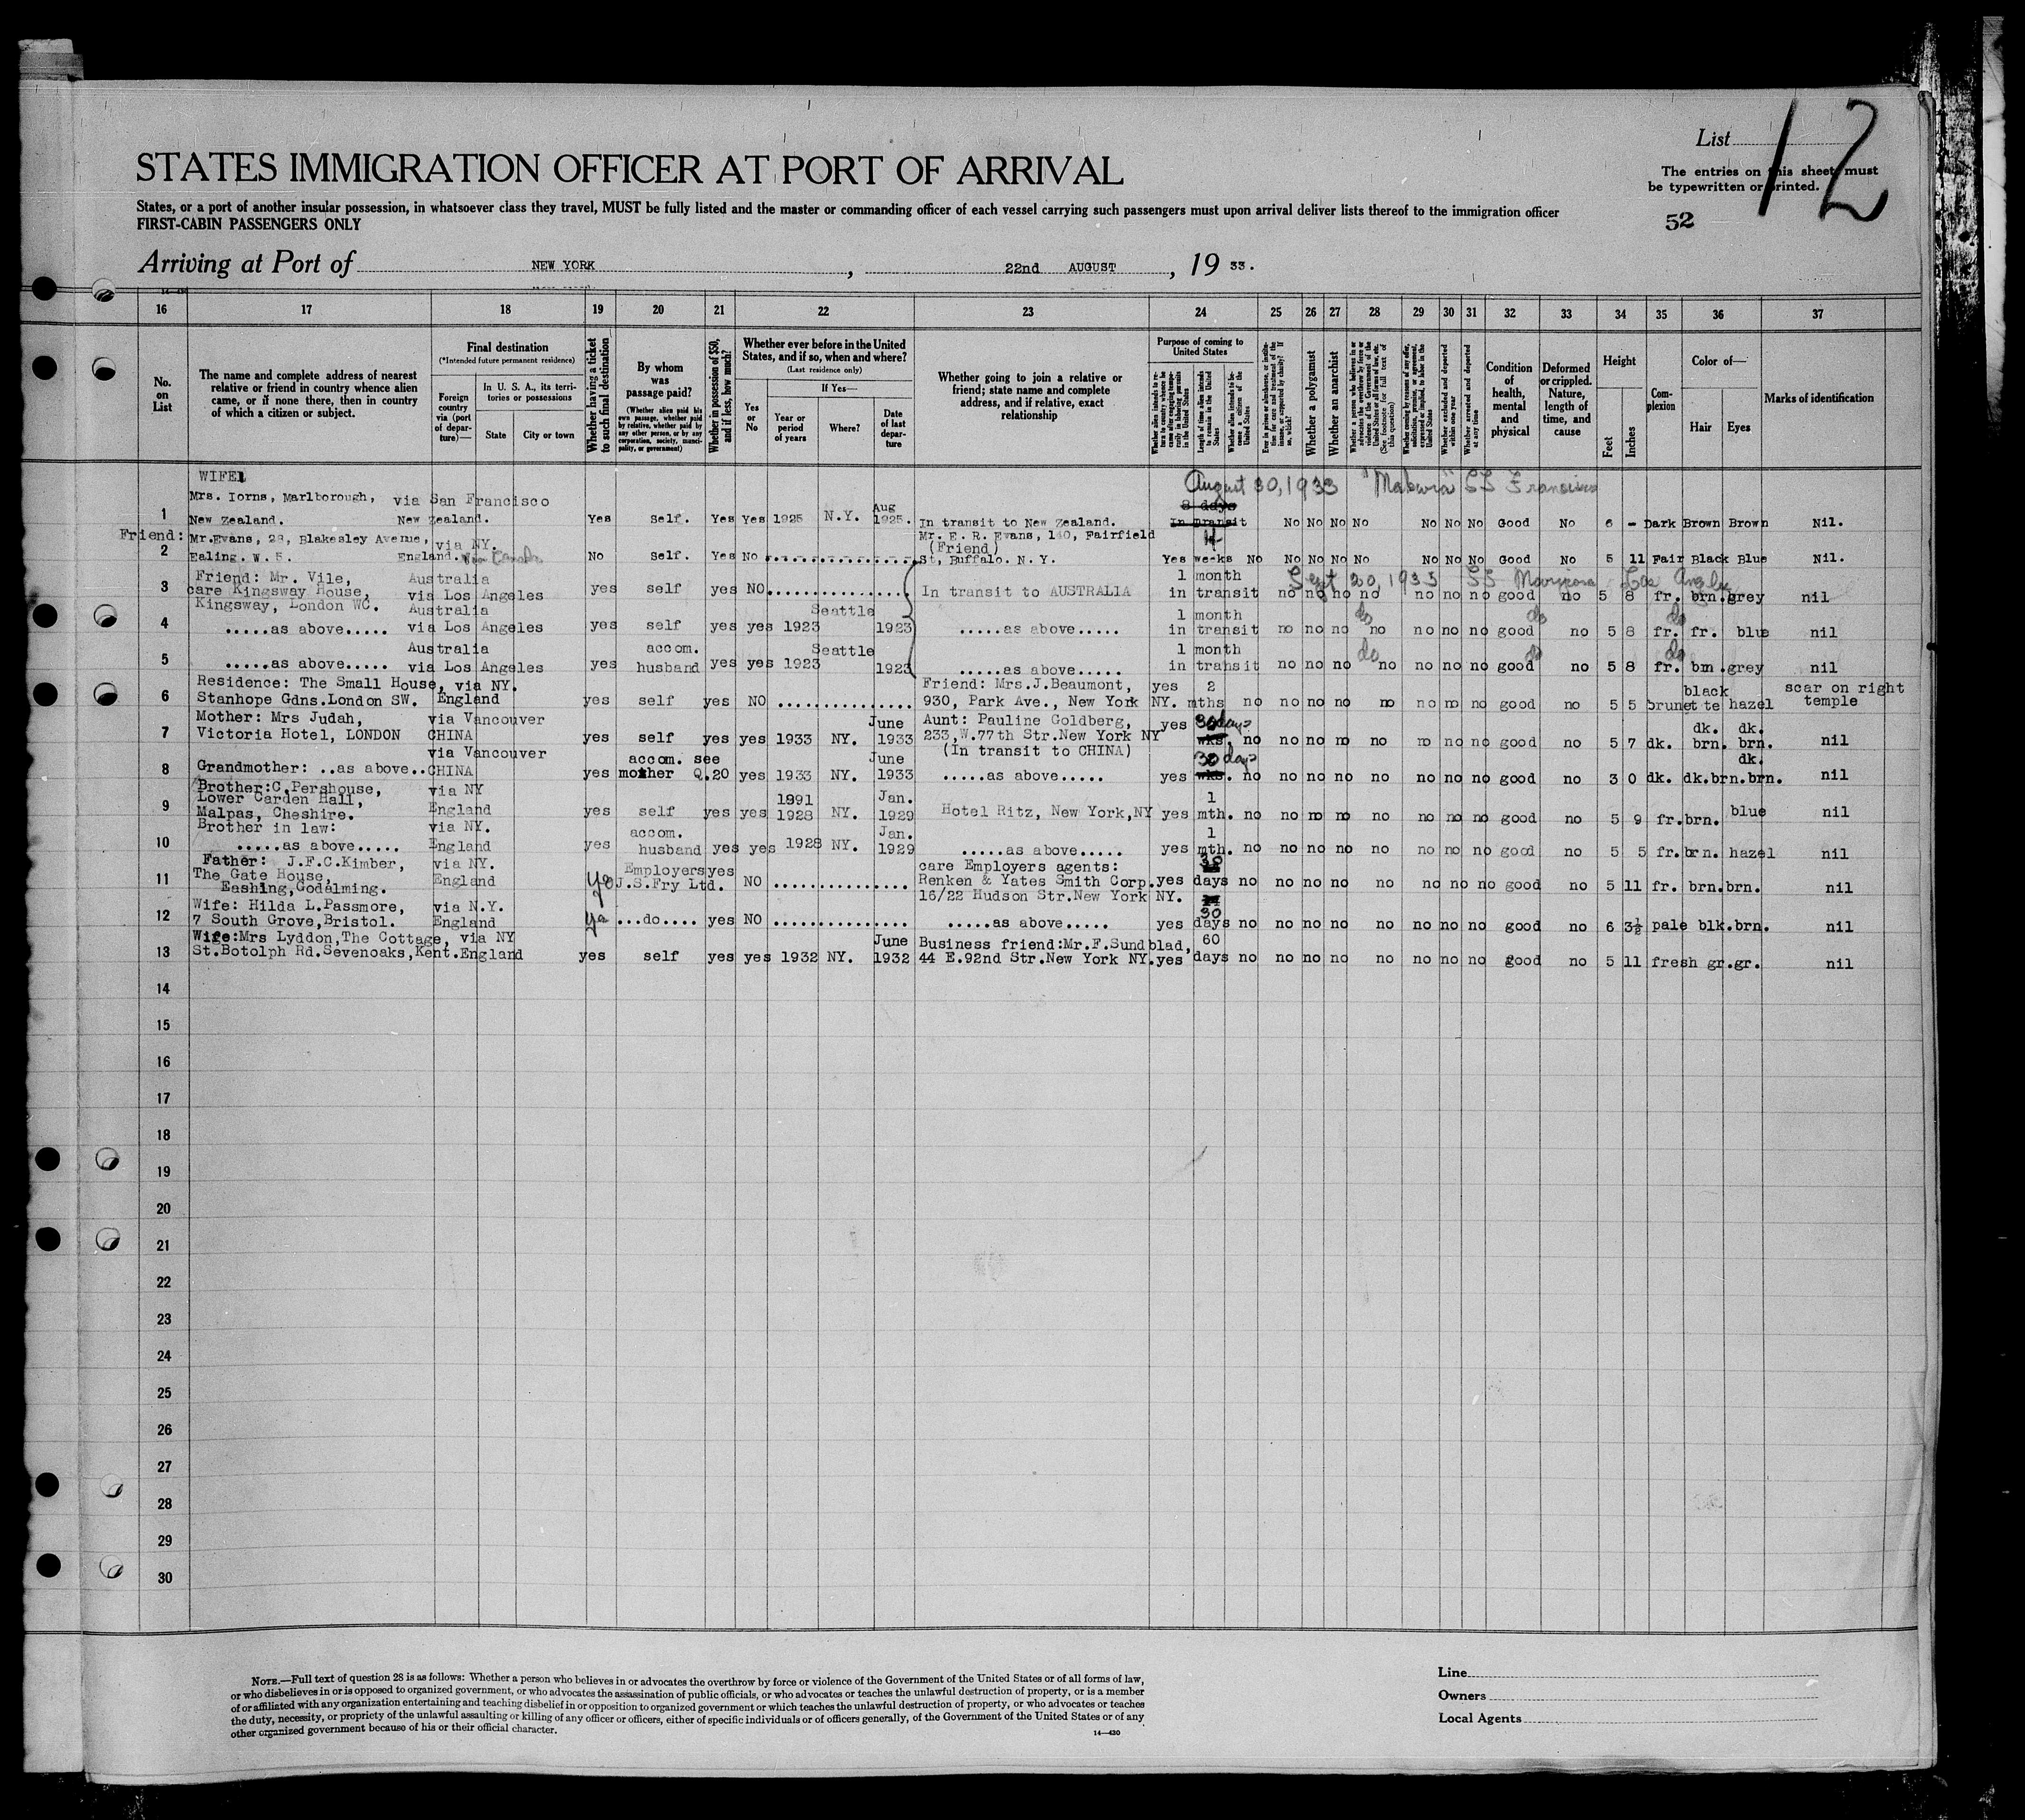 List
12
The entries on this sheet must
be typewritten or printed.
52
STATES IMMIGRATION OFFICER AT PORT OF ARRIVAL
States, or a port of another insular possession, in whatsoever class they travel, MUST be fully listed and the master or commanding officer of each vessel carrying such passengers must upon arrival deliver lists thereof to the immigration officer
FIRST-CABIN PASSENGERS ONLY
Arriving at Port of NEW YORK, 22nd AUGUST, 19 33.
16 17 18 19 20 21 22 23 24 25 26 27 28 29 30 31 32 33 34 35 36 37
No. on List
The name and complete address of nearest relative or friend in country whence alien came, or if none there, then in country of which a citizen or subject.
Final destination
(*Intended future permanent residence)
Foreign country via (port of departure)—
In U. S. A., its territories or possessions
State
City or town
Whether having a ticket to such final destination
By whom was passage paid?
(Whether alien paid his own passage, whether paid by relative, whether paid by any other person, or by any corporation, society, municipality, or government)
Whether in possession of $50, and if less, how much?
Whether ever before in the United States, and if so, when and where?
(Last residence only)
Yes or No
If Yes—
Year or period of years
Where?
Date of last departure
Whether going to join a relative or friend; state name and complete address, and if relative, exact relationship
Purpose of coming to United States
Length of time alien intends to remain in the United States
Whether alien intends to become a citizen of the United States
Whether a polygamist
Whether an anarchist
Whether excluded and deported within one year
Whether arrested and deported at any time
Condition of health, mental and physical
Deformed or crippled. Nature, length of time, and cause
Height
Feet
Inches
Complexion
Color of—
Hair
Eyes
Marks of identification
WIFE
August 30, 1933 San Francisco
Mrs. Iorns, Marlborough, via San Francisco 8 days
1 New Zealand. New Zealand. Yes Self. Yes Yes 1925 N.Y. Aug 1925. In transit to New Zealand. In Transit No No No No No No No Good No 6 - Dark Brown Brown Nil.
Friend: Mr. Evans, 28, Blakesley Avenue, via NY. Mr. E. R. Evans, 140, Fairfield 4
(Friend)
2 Ealing. W. 5. England. via Canada No Self. Yes No St, Buffalo. N. Y. Yes weeks No No No No No No No No Good No 5 11 Fair Black Blue Nil.
Friend: Mr. Vile, Australia 1 month Sept 20, 1933 SS Mariposa Los Angeles
3 care Kingsway House, via Los Angeles yes self yes NO In transit to AUSTRALIA in transit no no no no no no no good no 5 8 fr. brn. grey nil
Kingsway, London WC. Australia Seattle 1 month do do do
4 .....as above..... via Los Angeles yes self yes yes 1923 1923 .....as above..... in transit no no no no no no no good no 5 8 fr. fr. blue nil
Australia accom. Seattle 1 month do do do
5 .....as above..... via Los Angeles yes husband yes yes 1923 1923 .....as above..... in transit no no no no no no no good no 5 8 fr. brn. grey nil
Residence: The Small House, via NY. Friend: Mrs.J.Beaumont, yes 2 black scar on right
6 Stanhope Gdns.London SW. England yes self yes NO 930, Park Ave., New York NY. mths no no no no no no no no good no 5 5 brunette hazel temple
Mother: Mrs Judah, via Vancouver June Aunt: Pauline Goldberg, yes 30 days dk. dk.
7 Victoria Hotel, LONDON CHINA yes self yes yes 1933 NY. 1933 233,W.77th Str.New York NY wks. no no no no no no no no good no 5 7 dk. brn. brn. nil
via Vancouver accom. see June (In transit to CHINA) 30 days dk.
8 Grandmother: ..as above.. CHINA yes mother Q.20 yes 1933 NY. 1933 .....as above..... yes wks. no no no no no no no no good no 3 0 dk. dk.brn.brn. nil
Brother:C.Pershouse, via NY 1891 Jan. 1
9 Lower Carden Hall, England yes self yes yes 1928 NY. 1929 Hotel Ritz, New York,NY yes mth. no no no no no no no no good no 5 9 fr.brn. blue nil
Malpas, Cheshire.
Brother in law: via NY. accom. Jan. 1
10 .....as above..... England yes husband yes yes 1928 NY. 1929 .....as above..... yes mth. no no no no no no no no good no 5 5 fr.brn. hazel nil
Father: J.F.C.Kimber, via NY. Employers yes care Employers agents: 30
11 The Gate House, England yes J.S.Fry Ltd. NO Renken & Yates Smith Corp. yes days no no no no no no no no good no 5 11 fr. brn.brn. nil
Eashing,Godalming. 16/22 Hudson Str.New York NY.
Wife: Hilda L.Passmore, via N.Y. 30
12 7 South Grove,Bristol. England ya ...do.... yes NO .....as above..... yes days no no no no no no no no good no 6 3½ pale blk.brn. nil
Wife:Mrs Lyddon,The Cottage, via NY June Business friend:Mr.F.Sundblad, 60
13 St.Botolph Rd.Sevenoaks,Kent.England yes self yes yes 1932 NY. 1932 44 E.92nd Str.New York NY. yes days no no no no no no no no good no 5 11 fresh gr.gr. nil
14
15
16
17
18
19
20
21
22
23
24
25
26
27
28
29
30
NOTE.—Full text of question 28 is as follows: Whether a person who believes in or advocates the overthrow by force or violence of the Government of the United States or of all forms of law,
or who disbelieves in or is opposed to organized government, or who advocates the assassination of public officials, or who advocates or teaches the unlawful destruction of property, or is a member
of or affiliated with any organization entertaining and teaching disbelief in or opposition to organized government or which teaches the unlawful destruction of property, or who advocates or teaches
the duty, necessity, or propriety of the unlawful assaulting or killing of any officer or officers, either of specific individuals or of officers generally, of the Government of the United States or of any
other organized government because of his or their official character.
14—430
Line
Owners
Local Agents